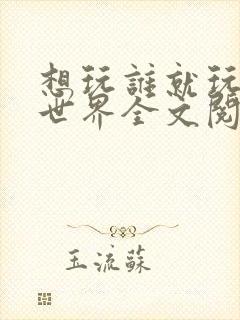 想玩誰就玩
世界全文閱
玉流蘇